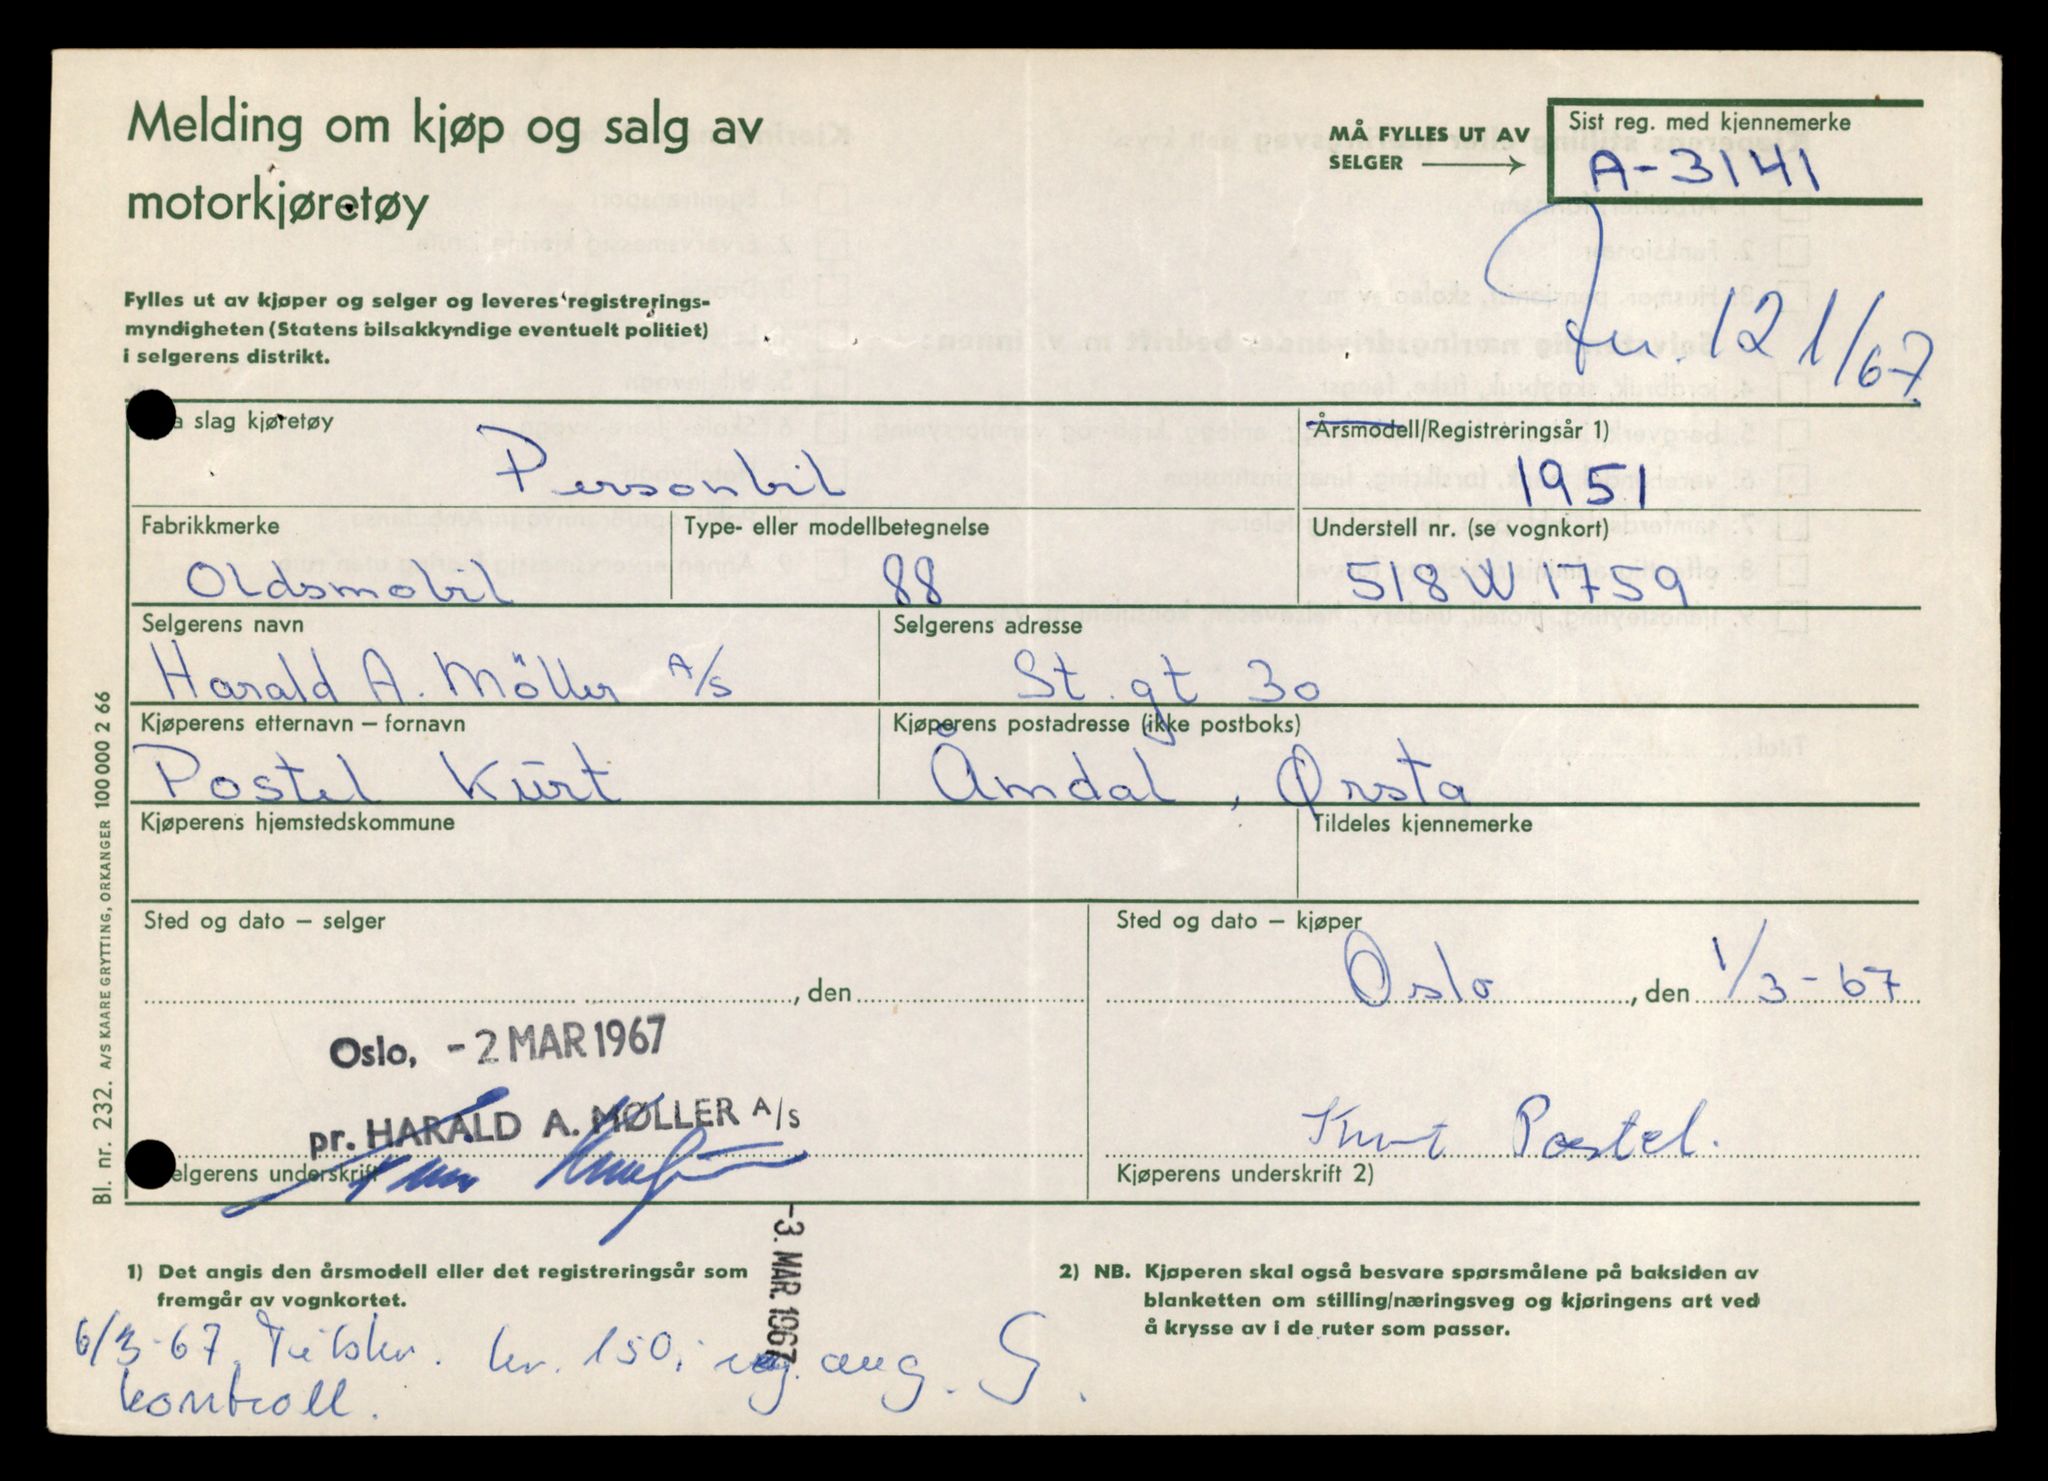 Melding om kjøp og salg av
motorkjøretøy
MÅ FYLLES UT AV
SELGER
Sist reg. med kjennemerke
A-3141
12 1/67
Fylles ut av kjøper og selger og leveres registrerings-
myndigheten (Statens bilsakkyndige eventuelt politiet)
i selgerens distrikt.
slag kjøretøy
Personbil
Årsmodell/Registreringsår 1)
1951
Fabrikkmerke
Oldsmobil
Type- eller modellbetegnelse
88
Understell nr. (se vognkort)
518W1759
Selgerens navn
Harald A. Möller A/S
Selgerens adresse
St. gt 30
Kjøperens etternavn – fornavn
Postel Kurt
Kjøperens postadresse (ikke postboks)
Åmdal, Ørsta
Kjøperens hjemstedskommune
Tildeles kjennemerke
Sted og dato – selger
, den
Oslo, -2 MAR 1967
pr. HARALD A. MØLLER A/S
Selgerens underskrift
Sted og dato – kjøper
Oslo, den 1/3-67
Kurt Postel.
Kjøperens underskrift 2)
Bl. nr. 232. A/S KAARE GRYTTING, ORKANGER 100 000 2 66
-3. MAR. 1967
1) Det angis den årsmodell eller det registreringsår som
fremgår av vognkortet.
2) NB. Kjøperen skal også besvare spørsmålene på baksiden av
blanketten om stilling/næringsveg og kjøringens art ved
å krysse av i de ruter som passer.
6/3-67. Tilskr. kr. 150,- ang.
kontroll.